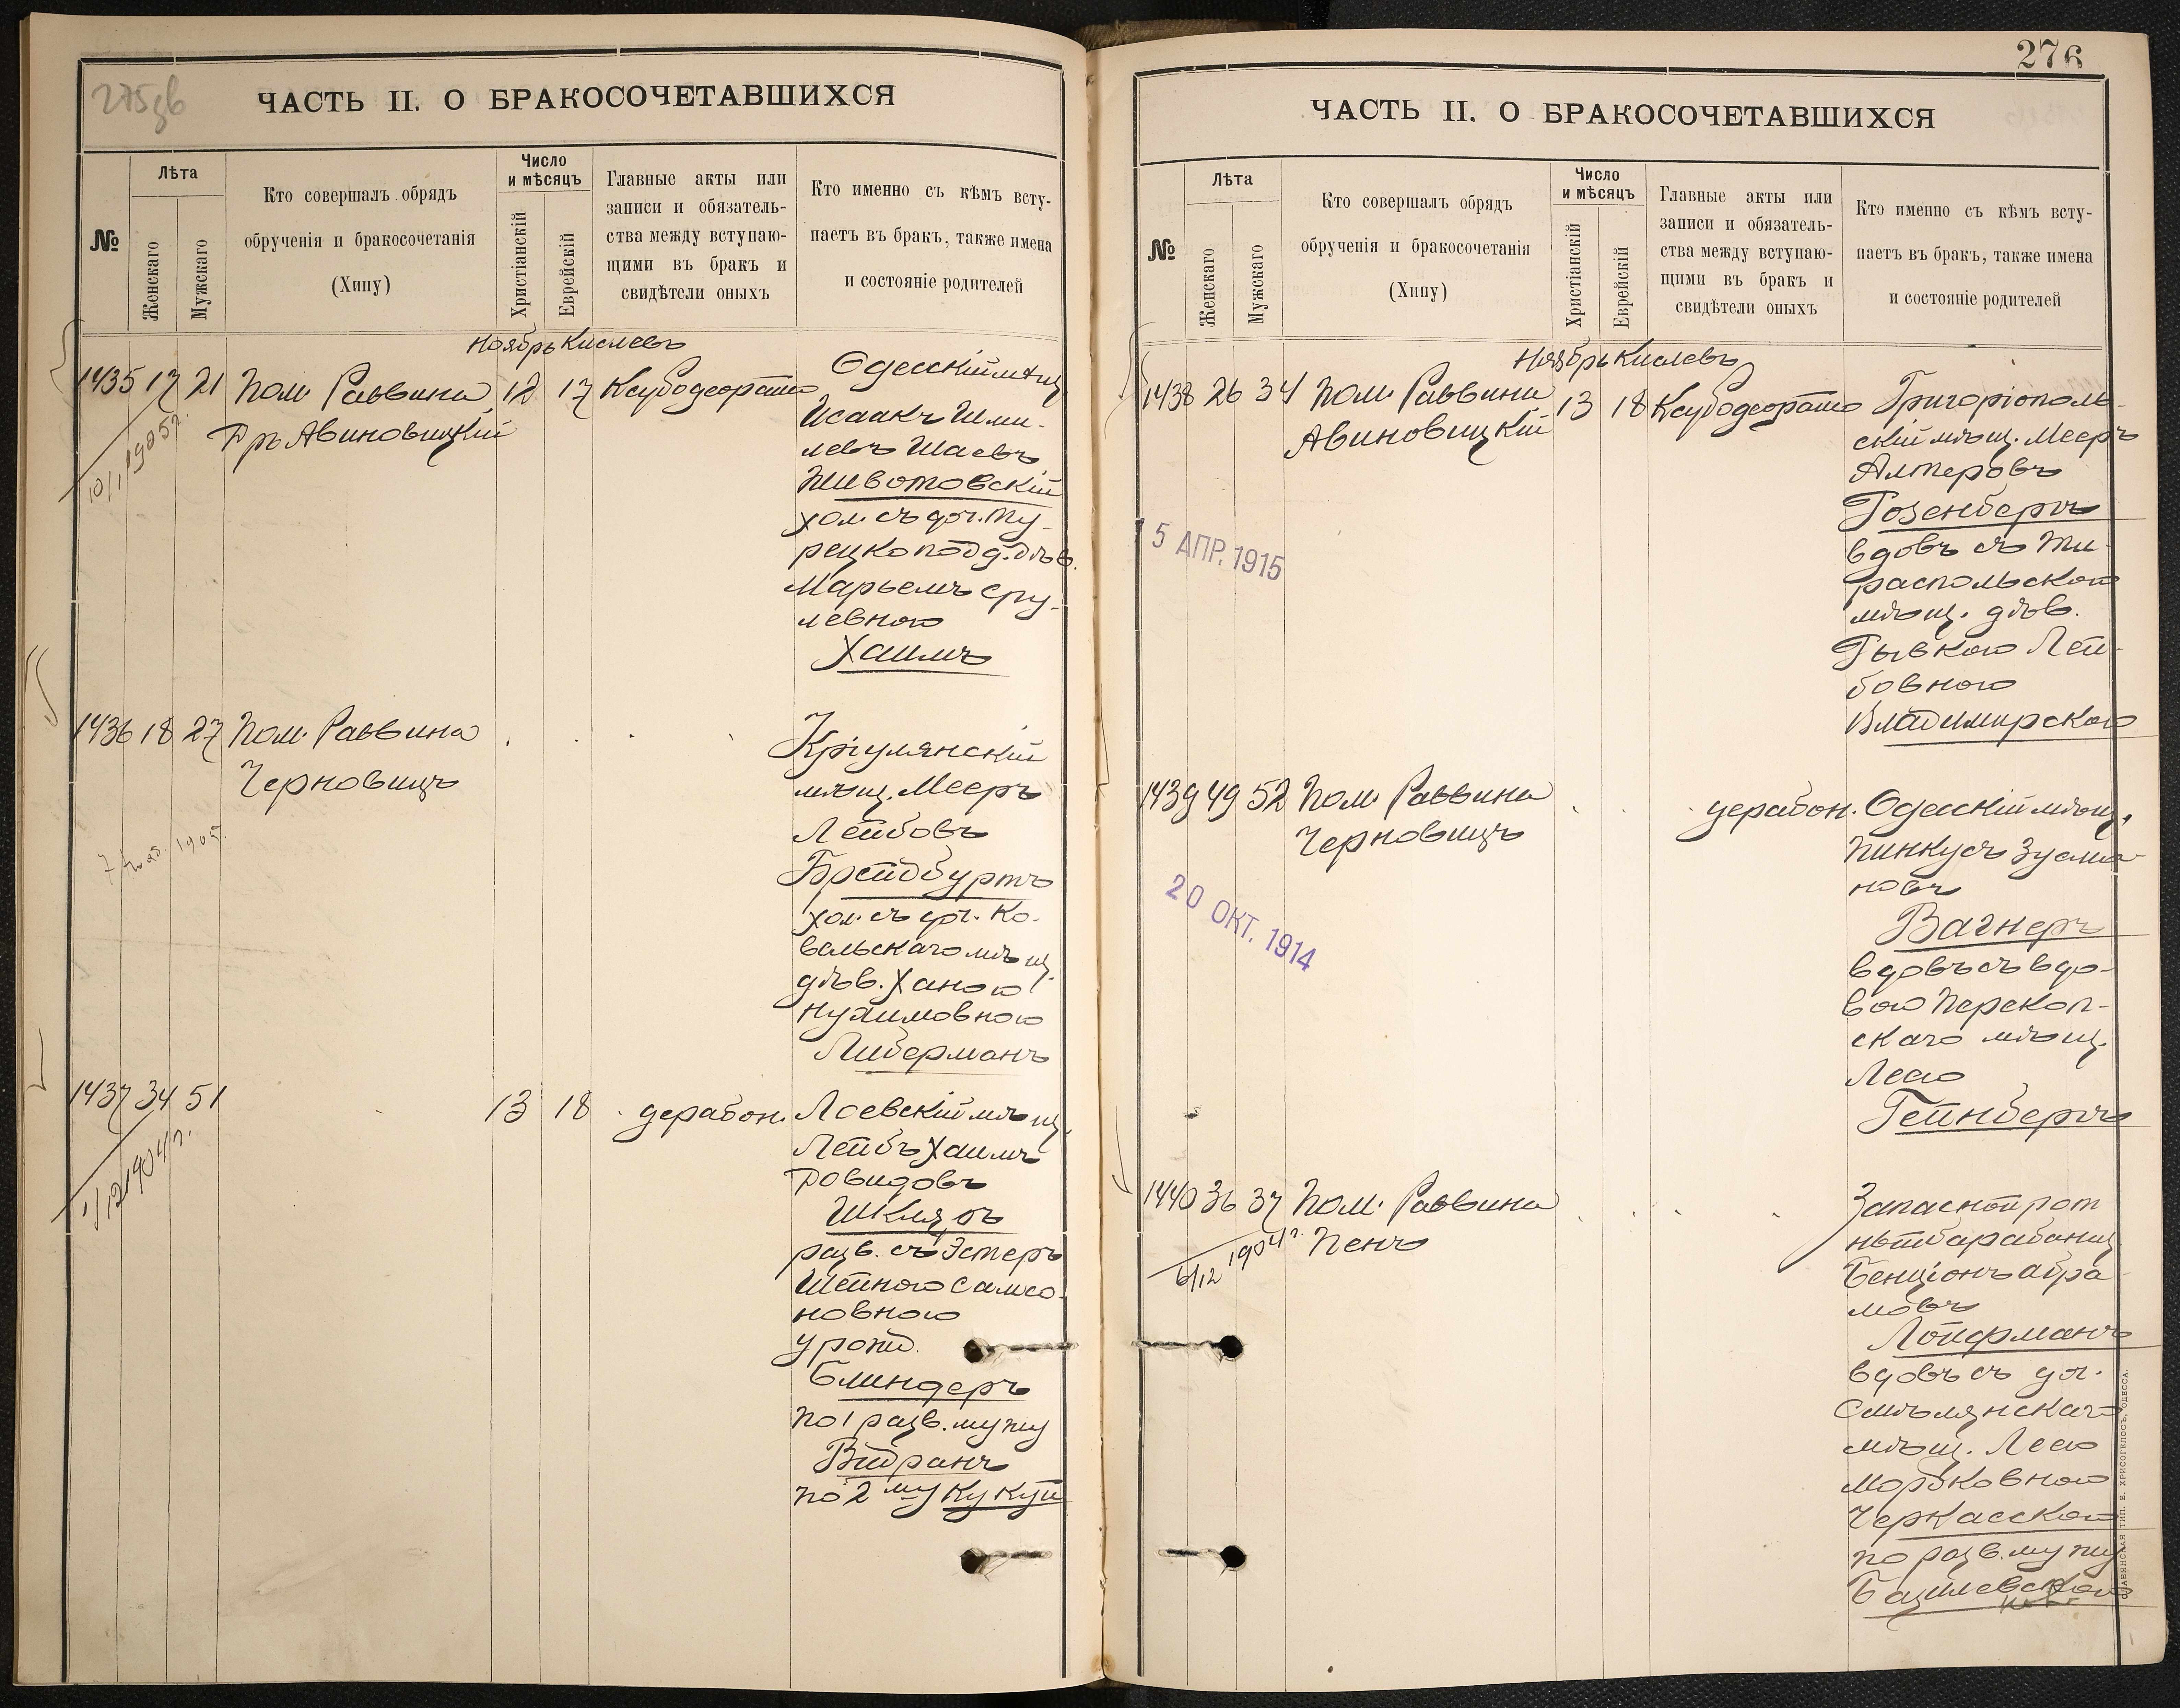 275зв
ЧАСТЬ II. О БРАКОСОЧЕТАВШИХСЯ
№
Лѣта
Женскаго
Мужскаго
Кто совершалъ обрядъ
обрученія и бракосочетанія
(Хипу)
Число
и мѣсяцъ
Христіанскій
Еврейскій
Главные акты или
записи и обязатель-
ства между вступаю-
щими въ бракъ и
свидѣтели оныхъ
Кто именно съ кѣмъ всту-
паетъ въ бракъ, также имена
и состояніе родителей
Ноябрь Кислевъ
1435 17 21 Пом. Раввина 12 17
Авиновицкій
10/I 1905г.
Одесскій мѣщ.
Исаакъ Шми-
левъ Шаевъ
Животовскій
хол. съ доч. Ту-
рецкоподд. дѣв.
Марьемъ Сру-
левною
Хаимъ
1436 18 27 Пом. Раввина
Черновицъ
1905.
Кріулянскій
мѣщ. Мееръ
Лейбовъ
Брейдбуртъ
хол. съ доч. Ко-
вальскаго мѣщ.
дѣв. Ханою
Нухимовною
Либерманъ
1437 34 51 13 18 дерабон.
1/12 1904г.
Лоевскій мѣщ.
Лейбъ Хаимъ
Довидовъ
Шкляръ
разв. съ Эстеръ
Шейною Самсо-
новною
урожд.
Блиндеръ
по 1 разв. мужу
Видранъ
по 2му Кукуй
276
ЧАСТЬ II. О БРАКОСОЧЕТАВШИХСЯ
№
Лѣта
Женскаго
Мужскаго
Кто совершалъ обрядъ
обрученія и бракосочетанія
(Хипу)
Число
и мѣсяцъ
Христіанскій
Еврейскій
Главные акты или
записи и обязатель-
ства между вступаю-
щими въ бракъ и
свидѣтели оныхъ
Кто именно съ кѣмъ всту-
паетъ въ бракъ, также имена
и состояніе родителей
Ноябрь Кислевъ
1438 26 34 Пом. Раввина 13 18
Авиновицкій
5 АПР. 1915
Григоріополь-
скій мѣщ. Мееръ
Алтеровъ
Розенбергъ
вдовъ съ Ти-
распольскою
мѣщ. дѣв.
Рывкою Лей-
бовною
Владимирскою
1439 49 52 Пом. Раввина дерабон.
Черновицъ
20 ОКТ. 1914
Одесскій мѣщ.
Пинкусъ Зусма-
новъ
Вагнеръ
вдовъ съ вдо-
вою Перекоп-
скаго мѣщ.
Леею
Гейнбергъ
1440 36 37 Пом. Раввина
Пенъ
6/12 1904г.
Запасной рот
ный барабанщ.
Бенціонъ Абра-
мовъ
Лойфманъ
вдовъ съ доч.
Смѣлянскаго
мѣщ. Леею
Мордковною
Черкасскою
по разв. мужу
СЛАВЯНСКАЯ ТИП. Е. ХРИСОГЕЛОСЪ, ОДЕССА.